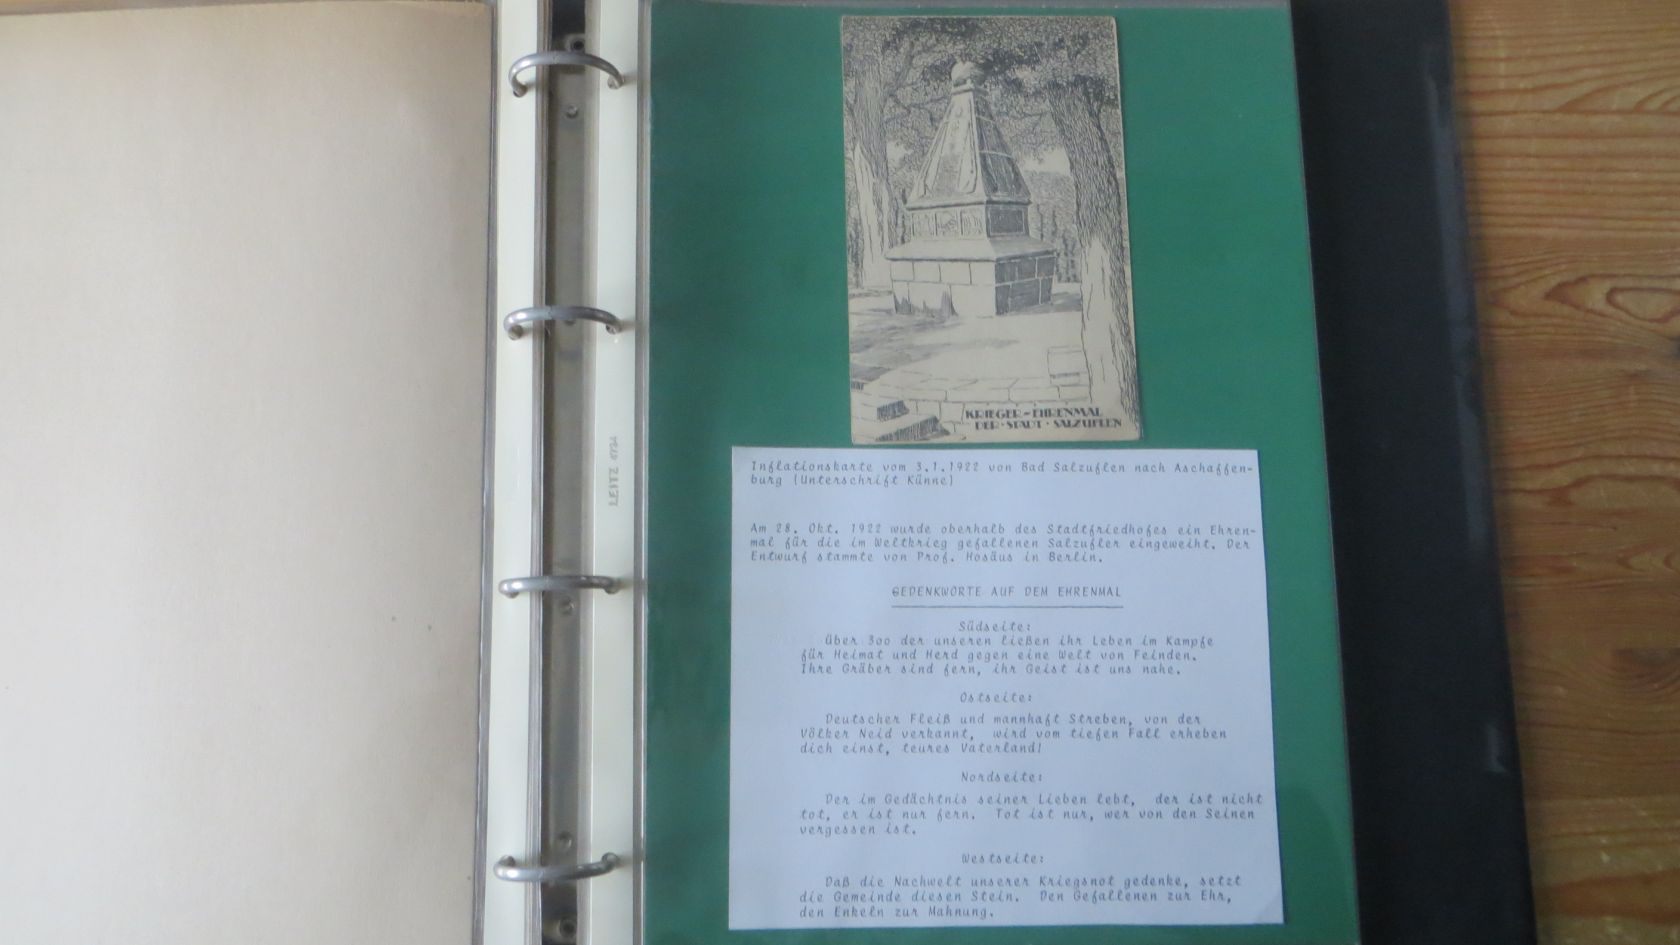 LEITZ
KRIEGER-EHRENMAL
DER·STADT·SALZUFLEN
Inflationskarte vom 3.1.1922 von Bad Salzuflen nach Aschaffen-
burg (Unterschrift Künne)
Am 28. Okt. 1922 wurde oberhalb des Stadtfriedhofes ein Ehren-
mal für die im Weltkrieg gefallenen Salzufler eingeweiht. Der
Entwurf stammte von Prof. Hosäus in Berlin.
GEDENKWORTE AUF DEM EHRENMAL
Südseite:
Über 3oo der unseren ließen ihr Leben im Kampfe
für Heimat und Herd gegen eine Welt von Feinden.
Ihre Gräber sind fern, ihr Geist ist uns nahe.
Ostseite:
Deutscher Fleiß und mannhaft Streben, von der
Völker Neid verkannt, wird vom tiefen Fall erheben
dich einst, teures Vaterland!
Nordseite:
Der im Gedächtnis seiner Lieben lebt, der ist nicht
tot, er ist nur fern. Tot ist nur, wer von den Seinen
vergessen ist.
Westseite:
Daß die Nachwelt unserer Kriegsnot gedenke, setzt
die Gemeinde diesen Stein. Den Gefallenen zur Ehr,
den Enkeln zur Mahnung.